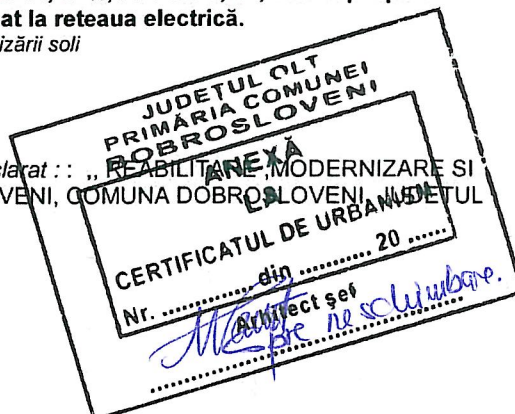 at la reteaua electrică.
izării soli
JUDEȚUL OLT
PRIMĂRIA COMUNEI
DOBROSLOVENI
clarat : : ,, REABILITARE ,MODERNIZARE SI
VENI, COMUNA DOBROSLOVENI, JUDETUL
ANEXĂ
LA
CERTIFICATUL DE URBANISM
Nr. ............. din ........... 20 ......
Arhitect șef
pre neschimbare.